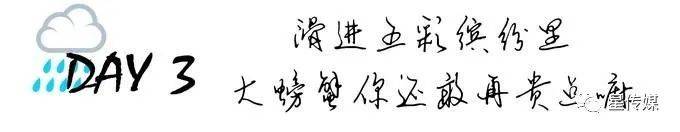 DAY 3
滑进五彩缤纷里
大螃蟹你还敢再贵点嘛
星传媒